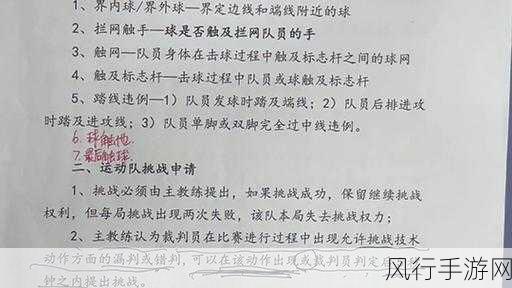 1、界内球/界外球—界定边线和端线附近的球
2、拦网触手—球是否触及拦网队员的手
3、触网—队员身体在击球过程中触及标志杆之间的球网
4、触及标志杆—击球过程中队员或球触及标志杆
5、踏线违例—1）队员发球时踏及端线；2）队员后排进攻
时踏及进攻线；3）队员单脚或双脚完全过中线违例。
6. 球触地.
7. 最后触球.
二、运动队挑战申请
1、挑战必须由主教练提出，如果挑战成功，保留继续挑战
权利，但每局挑战出现两次失败，该队本局失去挑战权力；
2、主教练认为裁判员在比赛进行过程中出现允许挑战技术
动作方面的漏判或错判，可以在该动作出现或裁判员判定后
钟之内提出挑战。
风行手游网